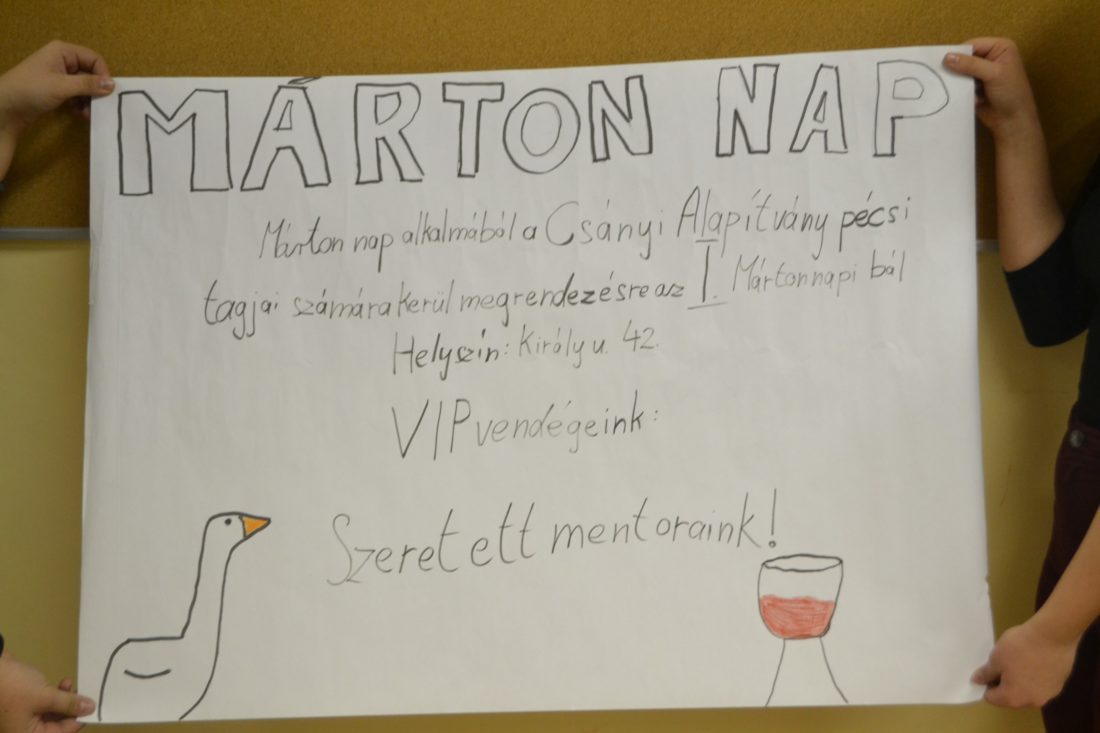 MÁRTON NAP
Márton nap alkalmából a Csányi Alapítvány pécsi
tagjai számára kerül megrendezésre az I. Mártonnapi bál
Helyszín: Király u. 42.
VIP vendégeink:
Szeretett mentoraink!